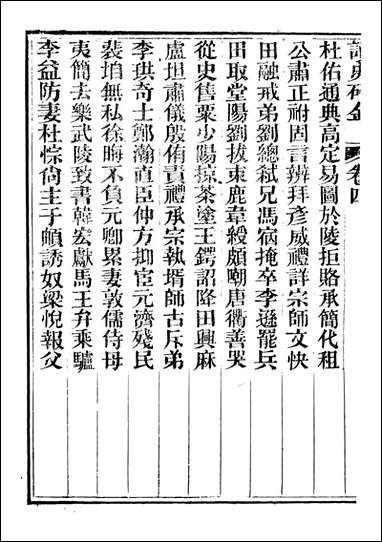 讀史碎金 卷四
杜佑通典高定易圖於陵拒賂承簡化租
公肅正祔固言辨拜彥威禮詳宗師文快
田融戒弟劉總弒兄馮宿掩卒李遜罷兵
田取堂陽劉拔束鹿韋綬頗嘲唐衢善哭
從史售粟少陽掠茶塗王鍔詔降田興麻
盧坦肅儀殷侑責禮承宗執壻師古斥弟
李珙奇士鄭瀚直臣仲方抑宦元濟殘民
裴垍無私徐晦不負元卿累妻敦儒侍母
夷簡去樂武陵致書韓宏獻馬王弁乘驢
李益防妻杜悰尙主于頔誘奴梁悅報父